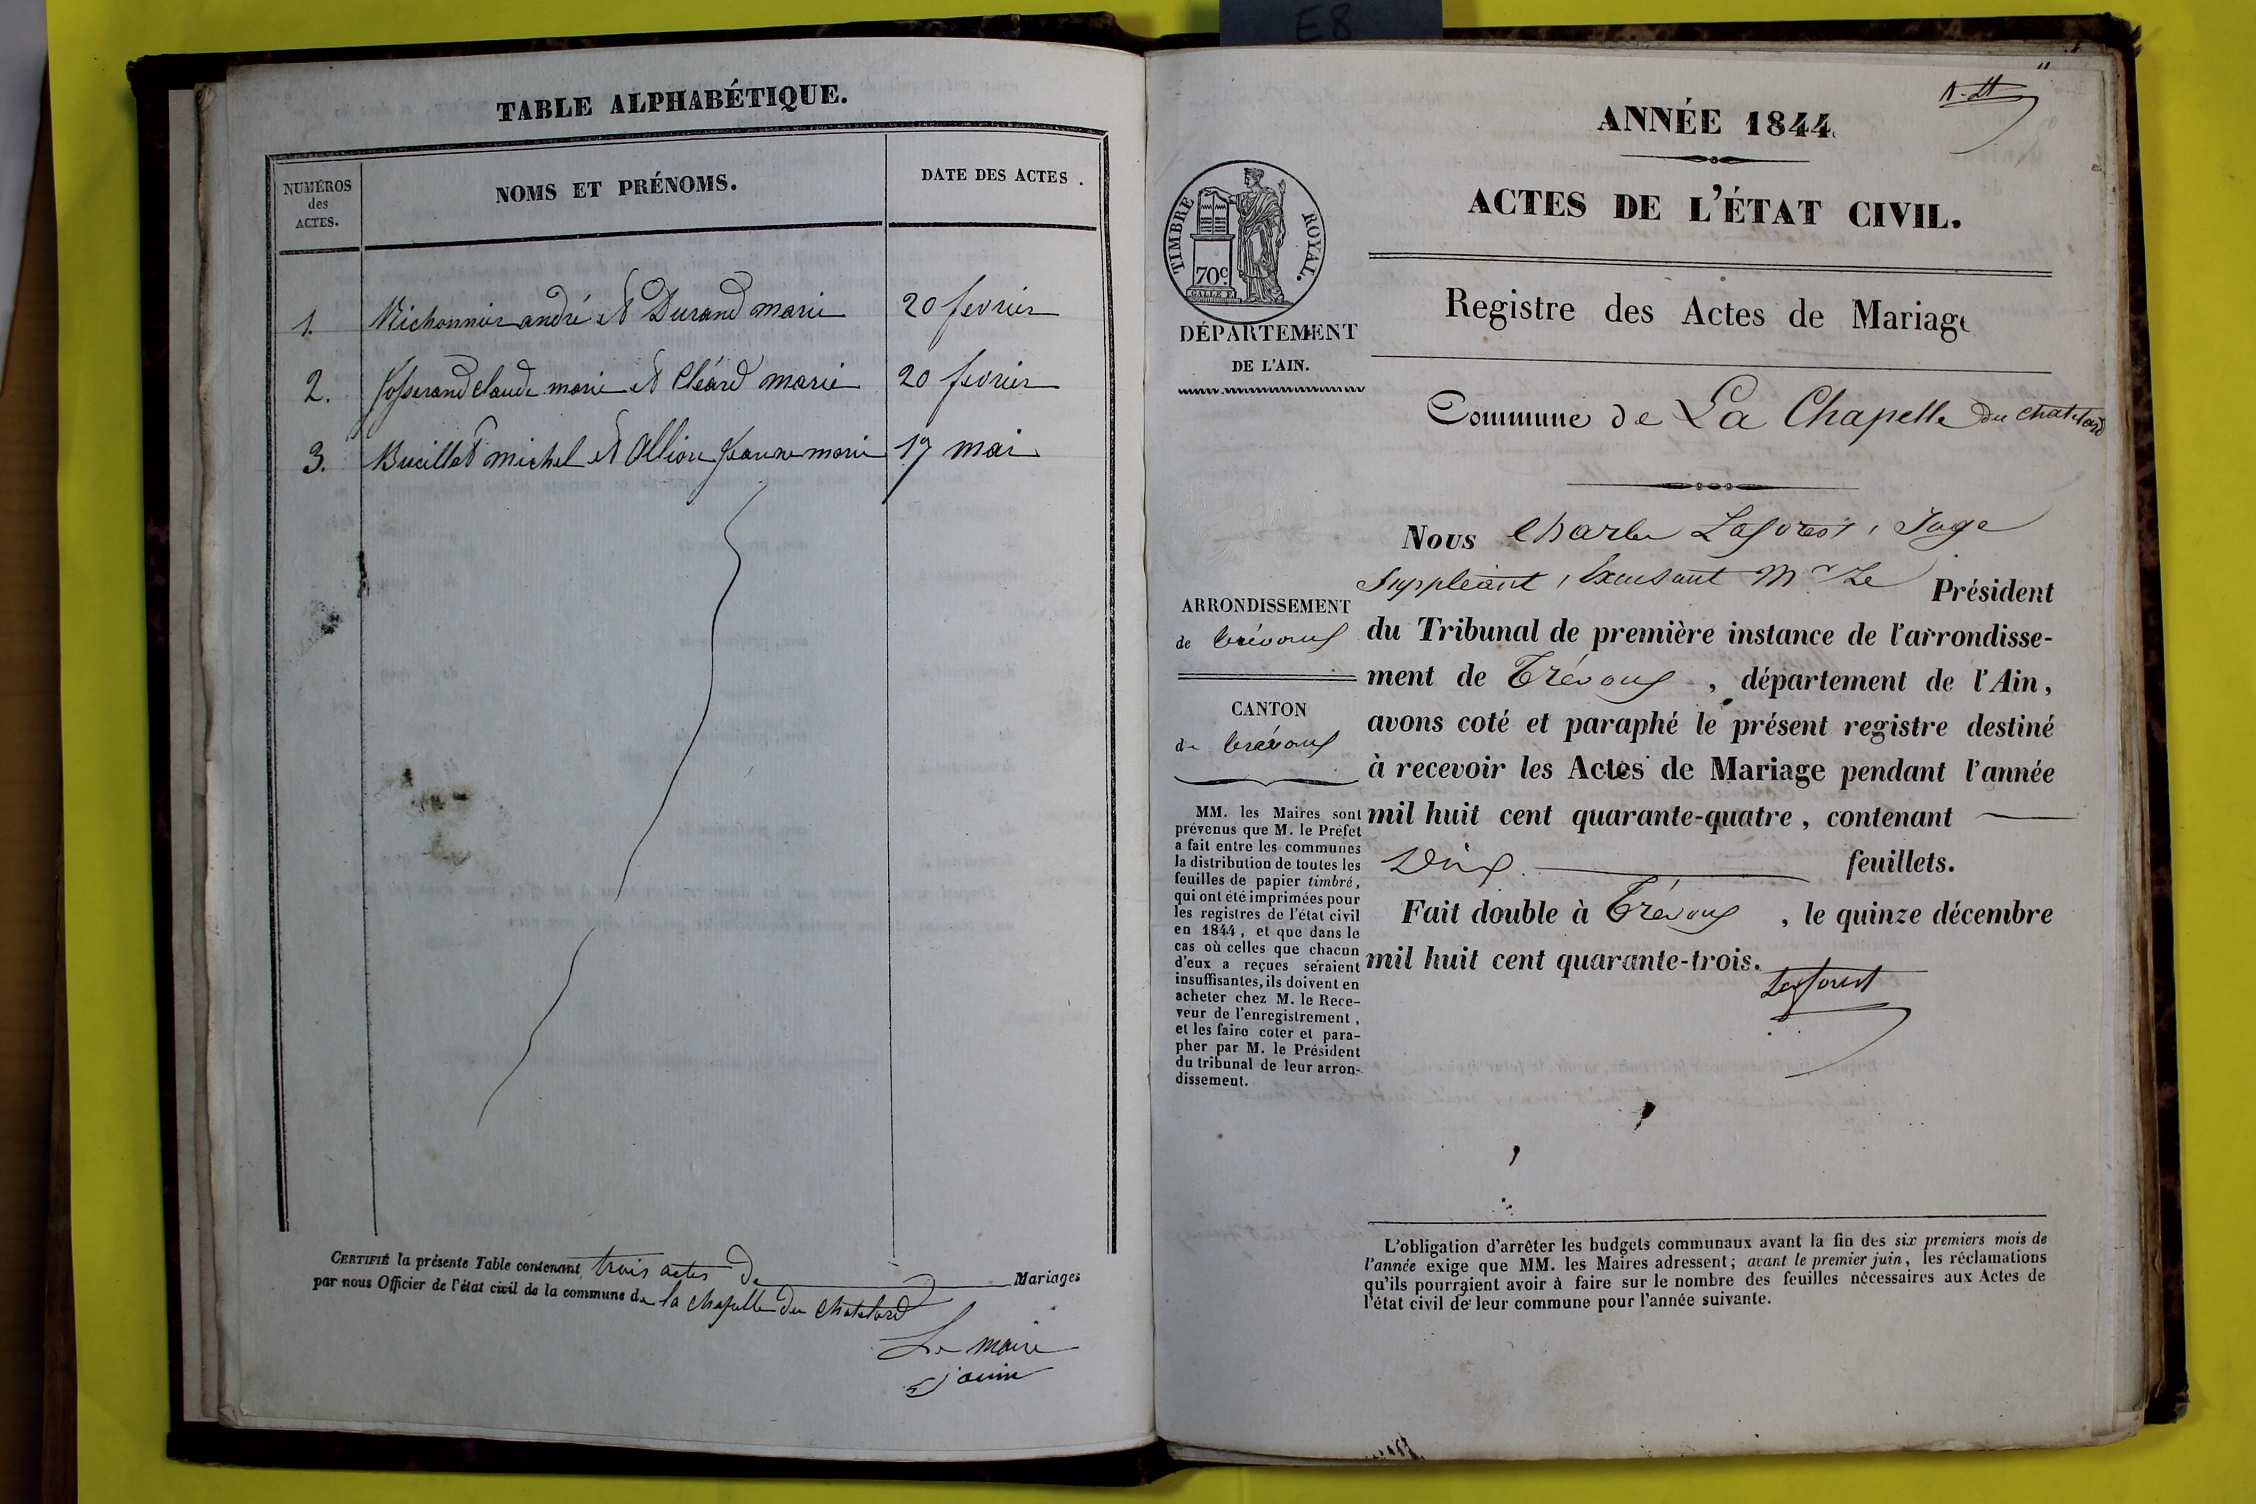 E8
TABLE ALPHABÉTIQUE.
NUMÉROS
des
ACTES.
NOMS ET PRÉNOMS.
DATE DES ACTES.
1. Michonnier andré et Durand marie 20 fevrier
2. Josserand claude marie et Cléard marie 20 fevrier
3. Bucillet michel et Allion jeanne marie 17 mai
CERTIFIÉ la présente Table contenant trois actes de Mariages
par nous Officier de l'état civil de la commune de la chapelle du chatelard
Le maire
ANNÉE 1844.
ACTES DE L'ÉTAT CIVIL.
TIMBRE ROYAL.
70c
DÉPARTEMENT
DE L'AIN.
Registre des Actes de Mariage
Commune de La Chapelle du chatelard
ARRONDISSEMENT
de trévoux
CANTON
de trévoux
MM. les Maires sont
prévenus que M. le Préfet
a fait entre les communes
la distribution de toutes les
feuilles de papier timbré,
qui ont été imprimées pour
les registres de l'état civil
en 1844, et que dans le
cas où celles que chacun
d'eux a reçues séraient
insuffisantes, ils doivent en
acheter chez M. le Rece-
veur de l'enregistrement,
et les faire coter et para-
pher par M. le Président
du tribunal de leur arron-
dissement.
Nous Charles Laforest, Juge
Suppléant, Excusant Mr Le Président
du Tribunal de première instance de l'arrondisse-
ment de Trévoux, département de l'Ain,
avons coté et paraphé le présent registre destiné
à recevoir les Actes de Mariage pendant l'année
mil huit cent quarante-quatre, contenant
Dix feuillets.
Fait double à Trévoux, le quinze décembre
mil huit cent quarante-trois.
Laforest
L'obligation d'arrêter les budgets communaux avant la fin des six premiers mois de
l'année exige que MM. les Maires adressent; avant le premier juin, les réclamations
qu'ils pourraient avoir à faire sur le nombre des feuilles nécessaires aux Actes de
l'état civil de leur commune pour l'année suivante.